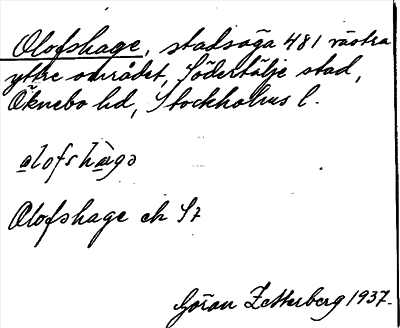 Olofshage, stadsäga 481 västra
yttre området, Södertälje stad,
Öknebo hd, Stockholms l.
alofshàgə
Olofshage ek St
Göran Zetterberg 1937.